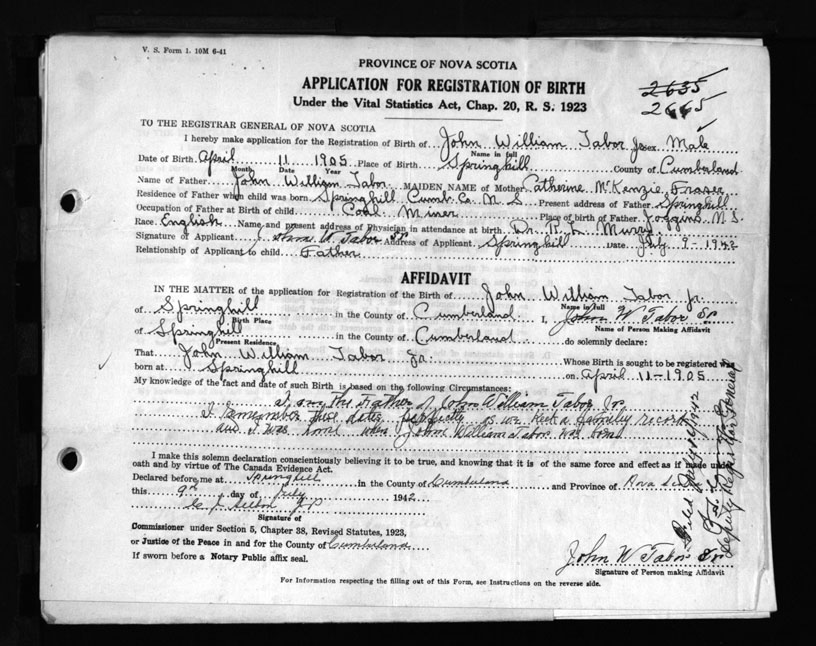 V. S. Form 1. 10M 6-41
PROVINCE OF NOVA SCOTIA
APPLICATION FOR REGISTRATION OF BIRTH
Under the Vital Statistics Act, Chap. 20, R. S. 1923
2635
2665
TO THE REGISTRAR GENERAL OF NOVA SCOTIA
I hereby make application for the Registration of Birth of John William Tabor Jr Sex Male
Name in full
Date of Birth April 11 1905 Place of Birth Springhill County of Cumberland
Month Date Year
Name of Father John William Tabor MAIDEN NAME of Mother Catherine McKenzie Fraser
Residence of Father when child was born Springhill Cumb. Co. N. S. Present address of Father Springhill
Occupation of Father at Birth of child Coal Miner Place of birth of Father Joggins N.S.
Race English Name and present address of Physician in attendance at birth Dr. R. L. Murray
Signature of Applicant John W Tabor Sr Address of Applicant Springhill Date July 9-1942
Relationship of Applicant to child Father
AFFIDAVIT
IN THE MATTER of the application for Registration of the Birth of John William Tabor Jr.
Name in full
of Springhill in the County of Cumberland I, John W Tabor Sr
Birth Place Name of Person Making Affidavit
of Springhill in the County of Cumberland do solemnly declare:
Present Residence
That John William Tabor Jr. Whose Birth is sought to be registered was
born at Springhill on April 11-1905
My knowledge of the fact and date of such Birth is based on the following Circumstances:
I am the Father of John William Tabor Jr.
I remember these dates perfectly as we kept a family record
and I was home when John William Tabor was born
I make this solemn declaration conscientiously believing it to be true, and knowing that it is of the same force and effect as if made under
oath and by virtue of The Canada Evidence Act.
Declared before me at Springhill in the County of Cumberland and Province of Nova Scotia
this 9th day of July 1942
J.P.
Signature of
Commissioner under Section 5, Chapter 38, Revised Statutes, 1923,
or Justice of the Peace in and for the County of Cumberland
If sworn before a Notary Public affix seal.
John W Tabor Sr
Signature of Person making Affidavit
For Information respecting the filling out of this Form, see Instructions on the reverse side.
Filed July 1942
Deputy Registrar General